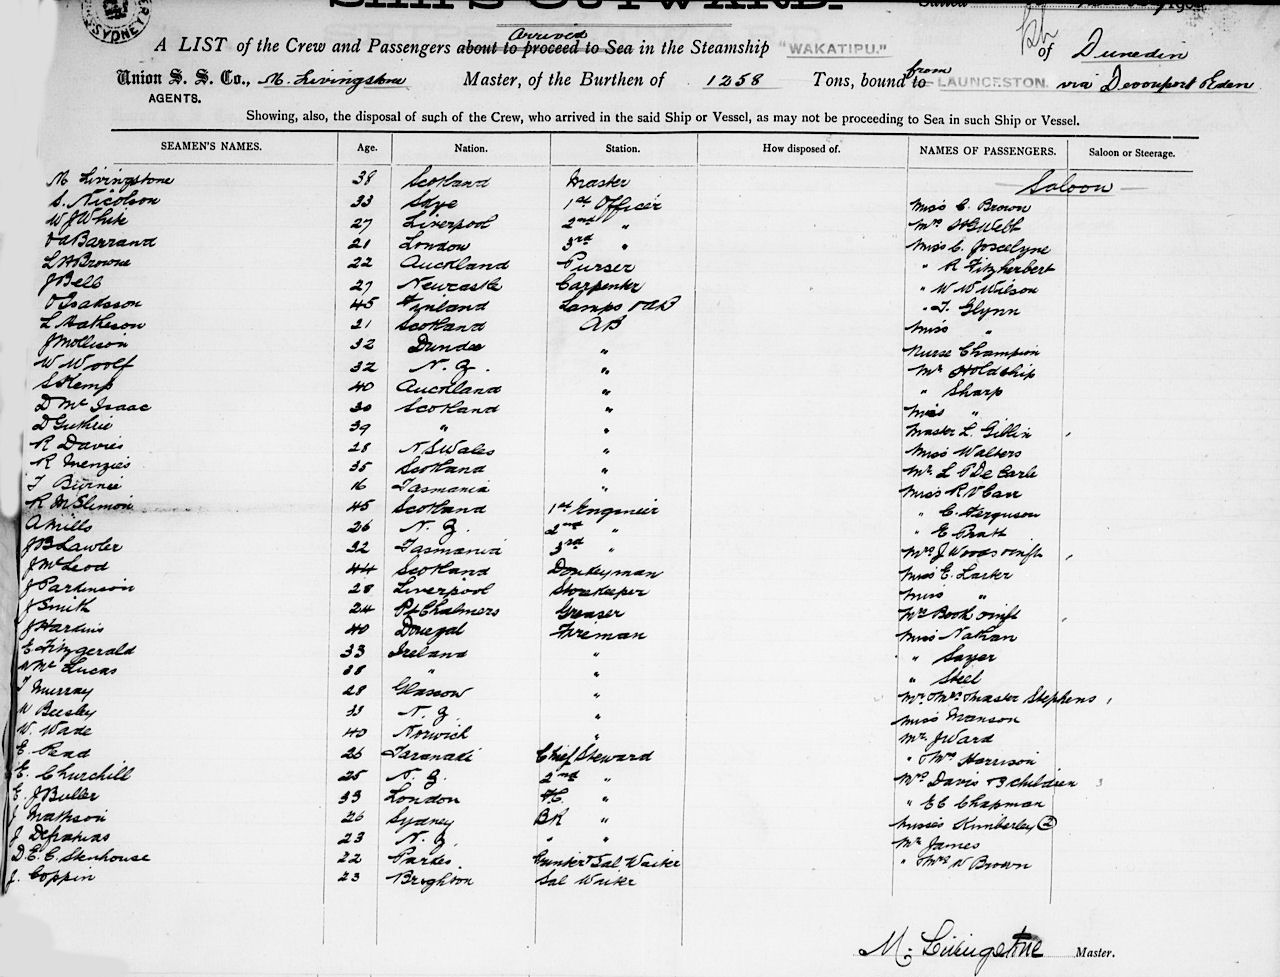 SHIPS OUTWARD.
SYDNEY
Arrived
A LIST of the Crew and Passengers about to proceed to Sea in the Steamship "WAKATIPU." of Dunedin
from
Union S. S. Co., M. Livingstone Master, of the Burthen of 1258 Tons, bound to LAUNCESTON. via Devonport Eden
AGENTS.
Showing, also, the disposal of such of the Crew, who arrived in the said Ship or Vessel, as may not be proceeding to Sea in such Ship or Vessel.
SEAMEN'S NAMES. Age. Nation. Station. How disposed of. NAMES OF PASSENGERS. Saloon or Steerage.
M Livingstone 38 Scotland Master Saloon
S. Nicolson 33 Skye 1st Officer Miss C. Brown
W J White 27 Liverpool 2nd " Mrs Webb
Barrand 21 London 3rd " Miss C. Joscelyne
L H Browne 22 Auckland Purser " R Fitzherbert
J Bell 27 Newcastle Carpenter " W W Wilson
O Isaksson 45 Finland Lamps & AB " T. Glynn
L Matheson 21 Scotland AB Miss "
J Mollison 32 Dundee " Nurse Champion
W Woolf 32 N. Z. " Mr Holdship
S Kemp 40 Auckland " " Sharp
D McIsaac 30 Scotland " Miss "
D Guthrie 39 " " Master L. Giblin
R Davies 28 N S Wales " Miss Walters
R Menzies 35 Scotland " Mr L De Carle
T Birnie 16 Tasmania " Miss R V Carr
R McSlimon 45 Scotland 1st Engineer " C. Ferguson
A Mills 26 N. Z. 2nd " " E Pratt
J B Lawler 32 Tasmania 3rd " Mrs J Woods & inft
J McLeod 44 Scotland Donkeyman Miss E. Larter
J Parkinson 28 Liverpool Storekeeper Miss "
J Smith 24 Pt Chalmers Greaser Mrs Book & inft
J Harkins 40 Donegal Fireman Miss Nathan
E Fitzgerald 33 Ireland " " Sayer
McLucas 38 " " " Steel
T Murray 28 Glasgow " Mr & Mrs & Master Stephens
W Beesley 33 N. Z. " Miss Manson
W. Wade 40 Norwich " Mr J Ward
E. Read 26 Taranaki Chief Steward " & Mrs Harrison
E. Churchill 25 N. Z. 2nd " Mrs Davis & 3 children 3
E. J Buller 33 London FC " " E C Chapman
J Mathson 26 Sydney BK " Misses Kimberley (2)
J Defratias 23 N. Z. " " Mr James
D. E. C. Stenhouse 22 Parkes Bunker & Sal Waiter " & Mrs W Brown
J. Coppin 23 Brighton Sal Waiter
M. Livingstone Master.